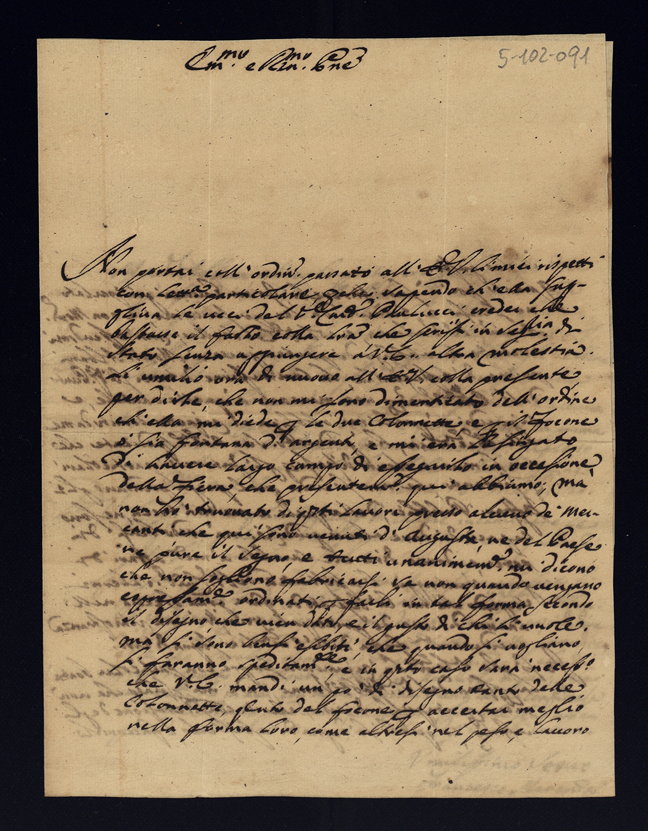 5-102-091
Em.mo e R.mo Pne
Non portai coll' ordin.o passato all' E.V. li miei rispetti
con lett.a particolare perche sapendo ch' ella
le veci del Card. Paulucci credei che
bastasse il fatto colla tra che scrissi in Seg.ria di
stato senza aggiungere à V.E. altra molestia.
Li umilio ora di nuovo all' E.V. colla presente
per dirle, che non mi sono dimenticato dell' ordine
ch' ella mi diede p le due Colonnette e p il focone
ò sia fontana d' argento, e mi era
di havere largo campo di eseguirlo in occasione
della fiera, che presentem.e quì abbiamo; mà
non hò truovato di q.ti lavori presso alcuno de Mer-
canti che quì sono venuti d' Augusta ne del Paese
ne pure il segno e tutti unanimem.e mi dicono
che non sogliono fabricarsi se non quando vengano
espressam.e ordinati, p farli in tal forma secondo
il disegno che vien dato, e il gusto di chi li vuole.
ma si sono bensi esibiti che quando si vogliano,
si faranno speditam.e, e in q.to caso sarà necess.o
che V.E. mandi un pò di disegno tanto delle
Colonnette q.nto del focone p accertar meglio
nella forma loro, come altresi nel peso, e lavoro